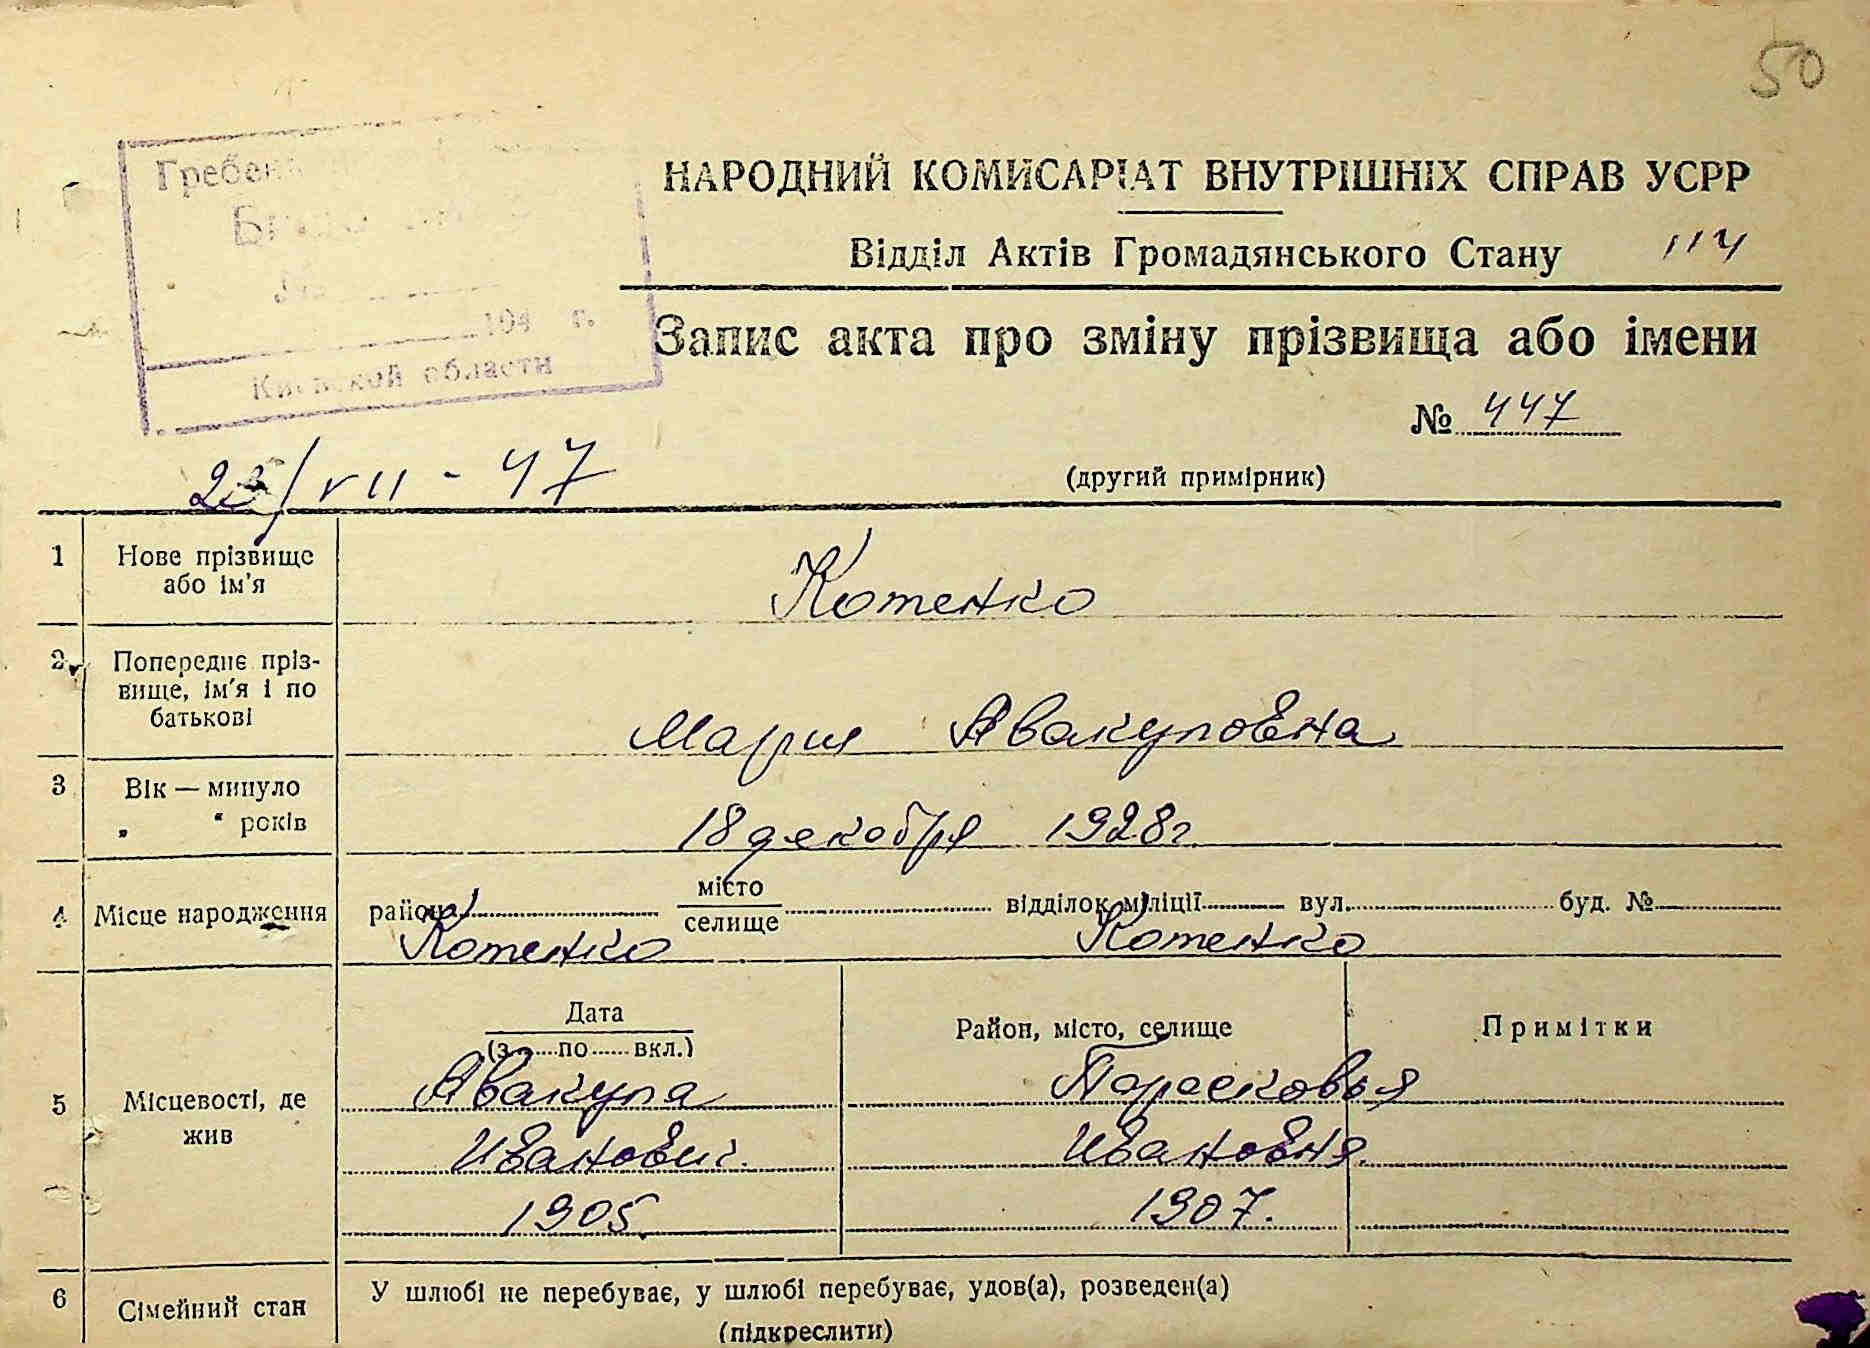 50
Гребен
НАРОДНИЙ КОМИСАРІАТ ВНУТРІШНІХ СПРАВ УСРР
Відділ Актів Громадянського Стану 114
194 г.
Киевской области
Запис акта про зміну прізвища або імени
№ 447
(другий примірник)
23/VII - 47
1 Нове прізвище або ім'я
Котенко
2 Попереднє пріз-
вище, ім'я і по
батькові
Мария Авакумовна
3 Вік — минуло
„ “ років
18 декабря 1928г.
4 Місце народження района місто селище відділок міліції вул. буд. №
Котенко Котенко
5 Місцевості, де
жив
Дата
(з......по......вкл.)
Район, місто, селище
Примітки
Авакума Парасковья
Иванович. Ивановня.
1905 1907.
6 Сімейний стан
У шлюбі не перебуває, у шлюбі перебуває, удов(а), розведен(а)
(підкреслити)